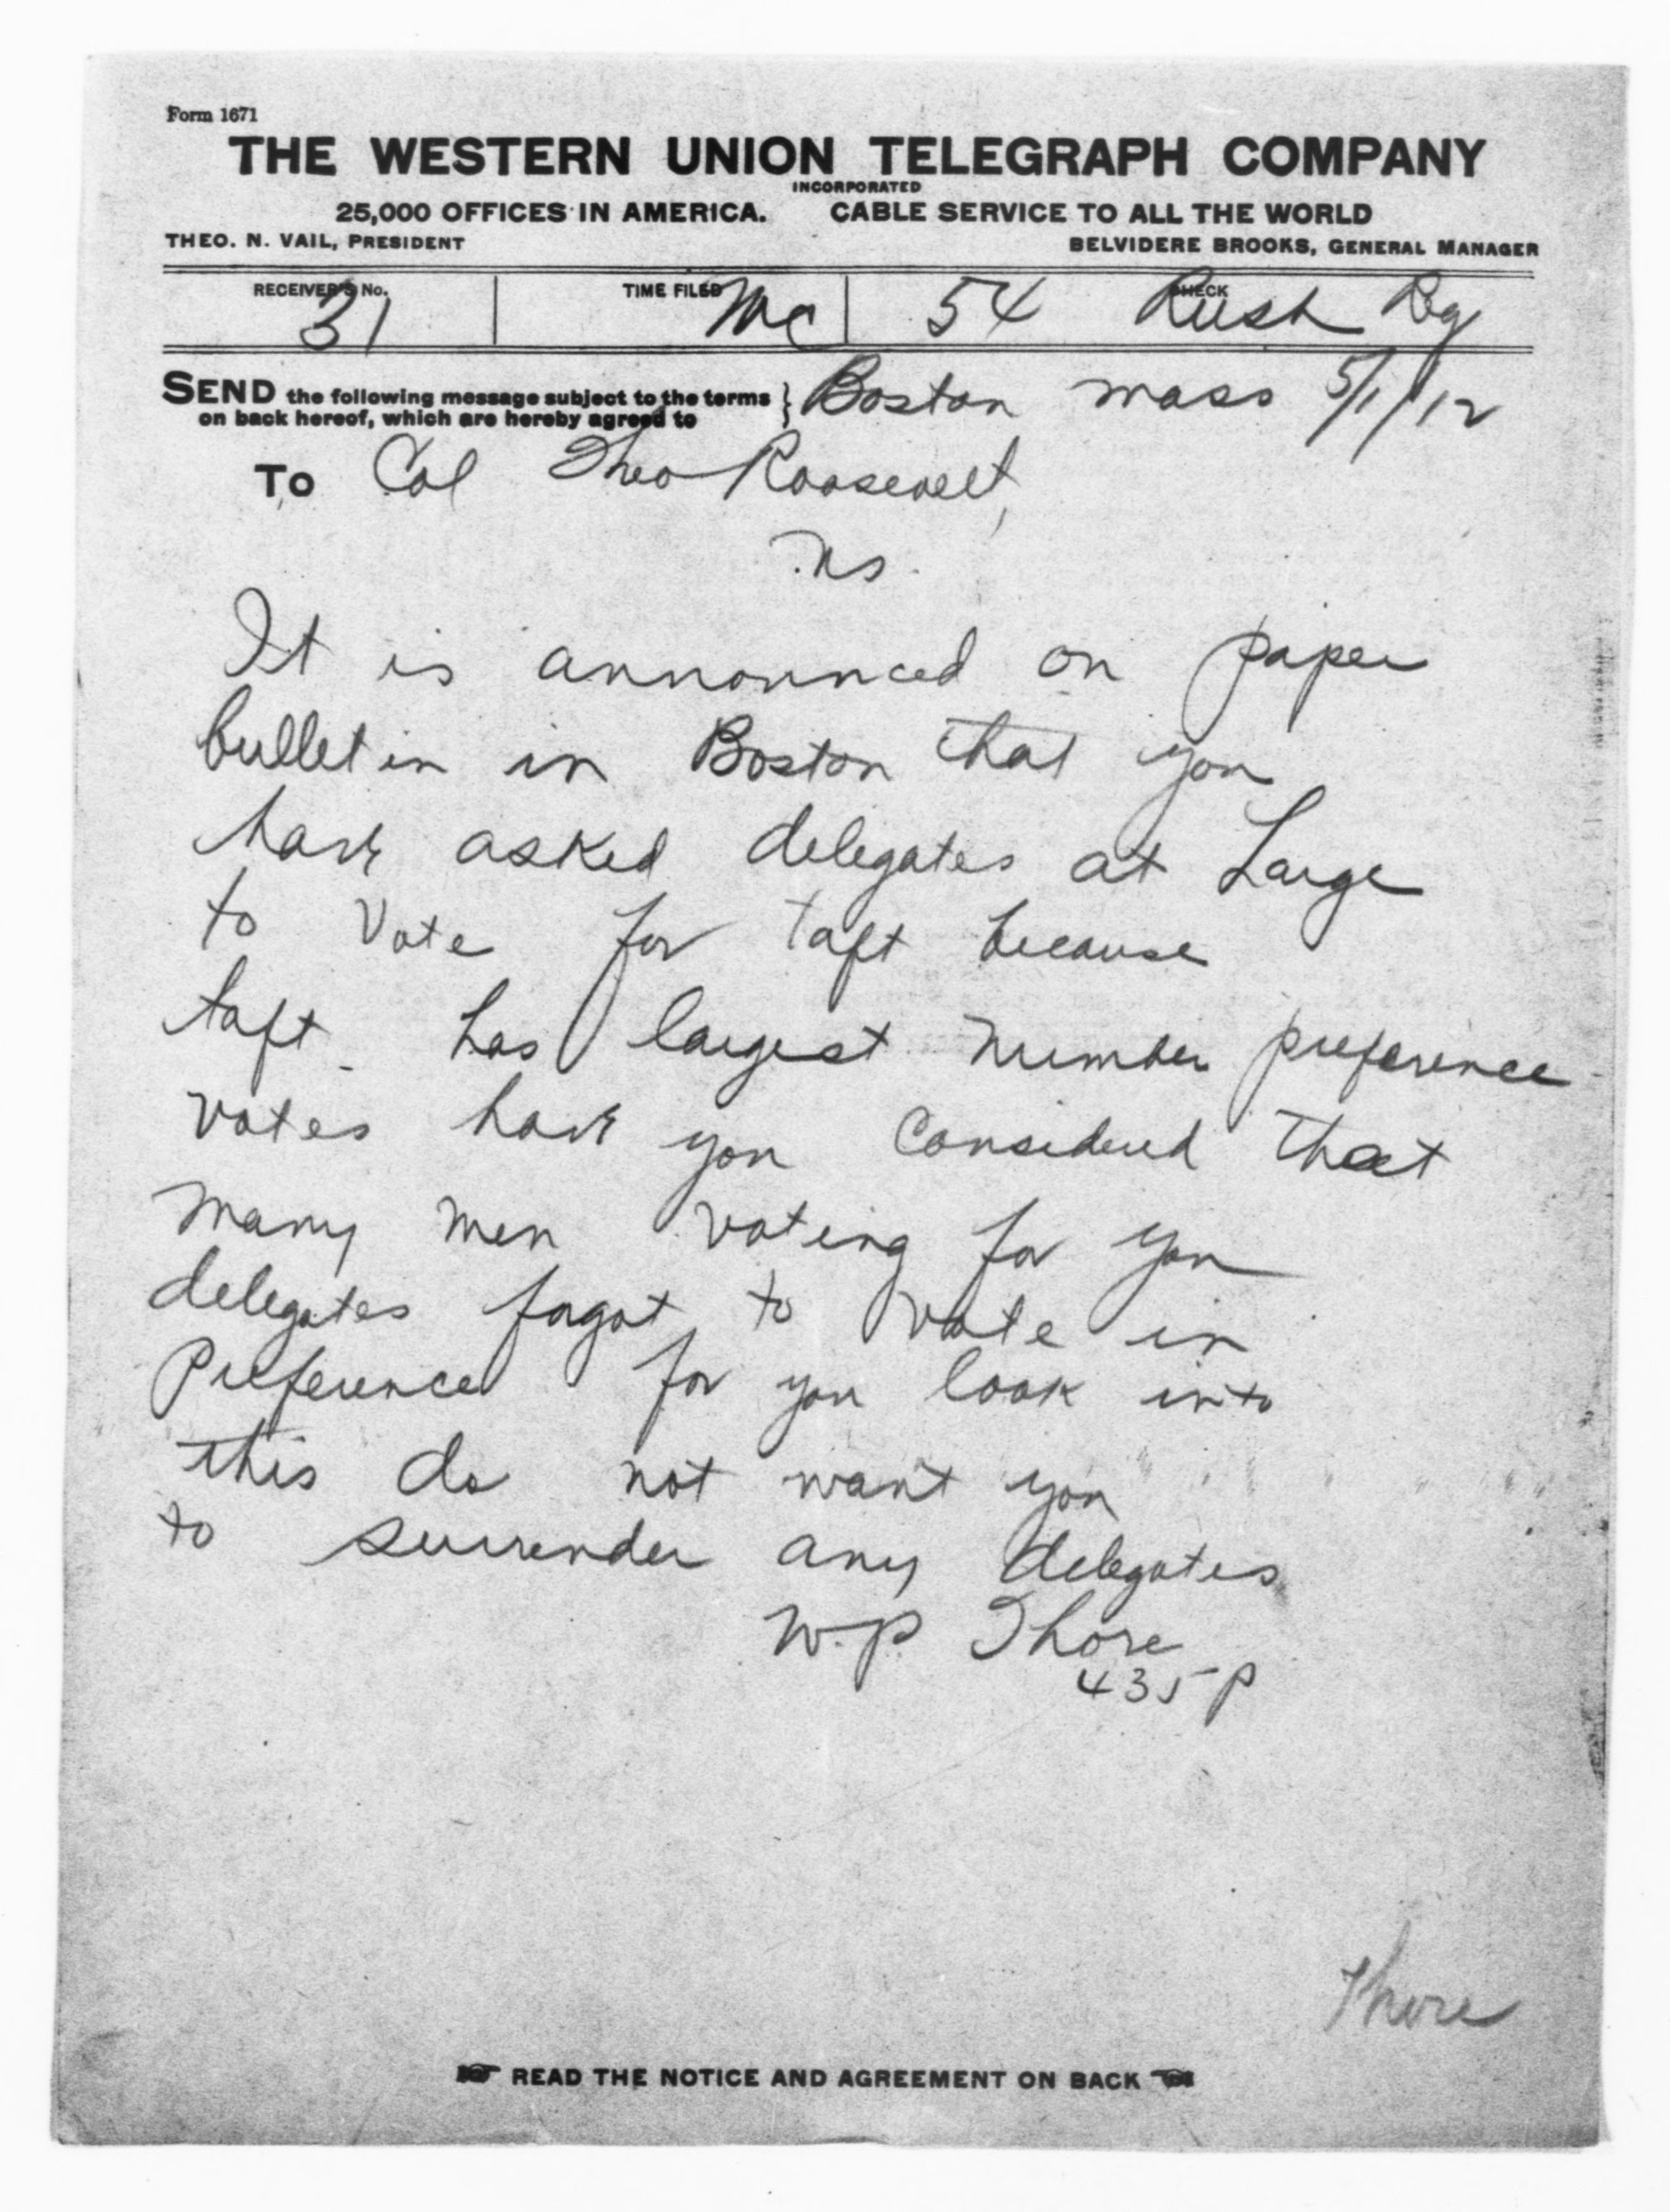 Form 1671
THE WESTERN UNION TELEGRAPH COMPANY
INCORPORATED
25,000 OFFICES IN AMERICA. CABLE SERVICE TO ALL THE WORLD
THEO. N. VAIL, PRESIDENT BELVIDERE BROOKS, GENERAL MANAGER
RECEIVER'S No. TIME FILED CHECK
31 Mc 54 Rush
SEND the following message subject to the terms
on back hereof, which are hereby agreed to } Boston mass 5/1/12
To Col Theo Roosevelt,
It is announced on paper
bulletin in Boston that you
have asked delegates at Large
to Vote for taft because
taft has largest number preference
votes have you considered that
many men voting for you
delegates forgot to vote in
Preference for you look into
this do not want you
to surrender any delegates
W.P Thore
435 P
Thore
READ THE NOTICE AND AGREEMENT ON BACK